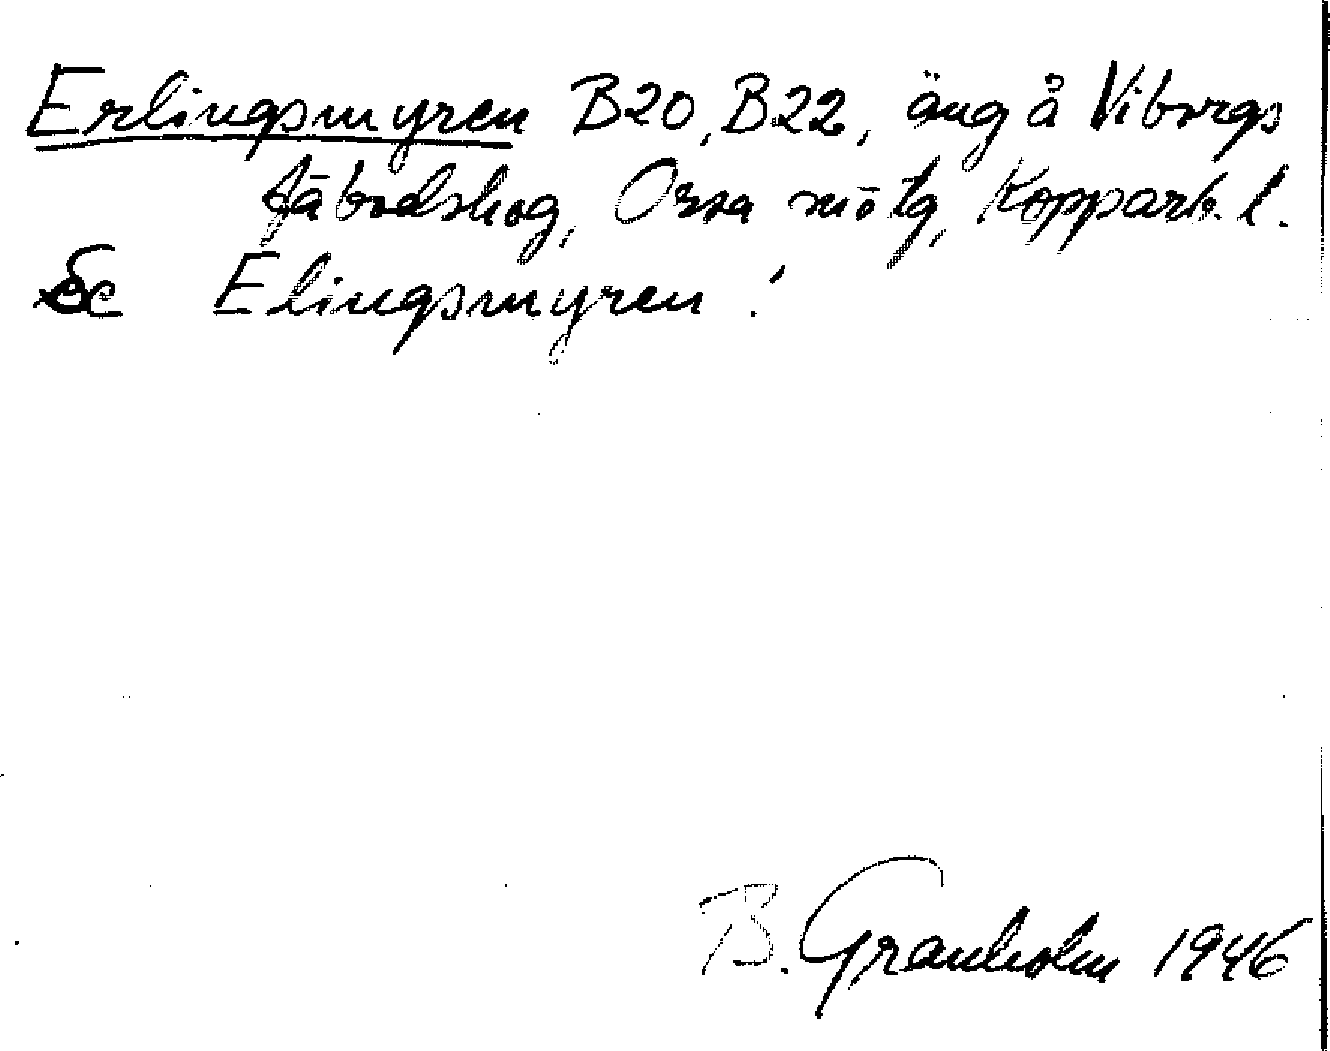 Erlingsmyren B20, B22, äng å Viborgs
fäbodskog, Orsa sn ö tg, Kopparb. l.
Se Elingsmyren!
B. Granholm 1946